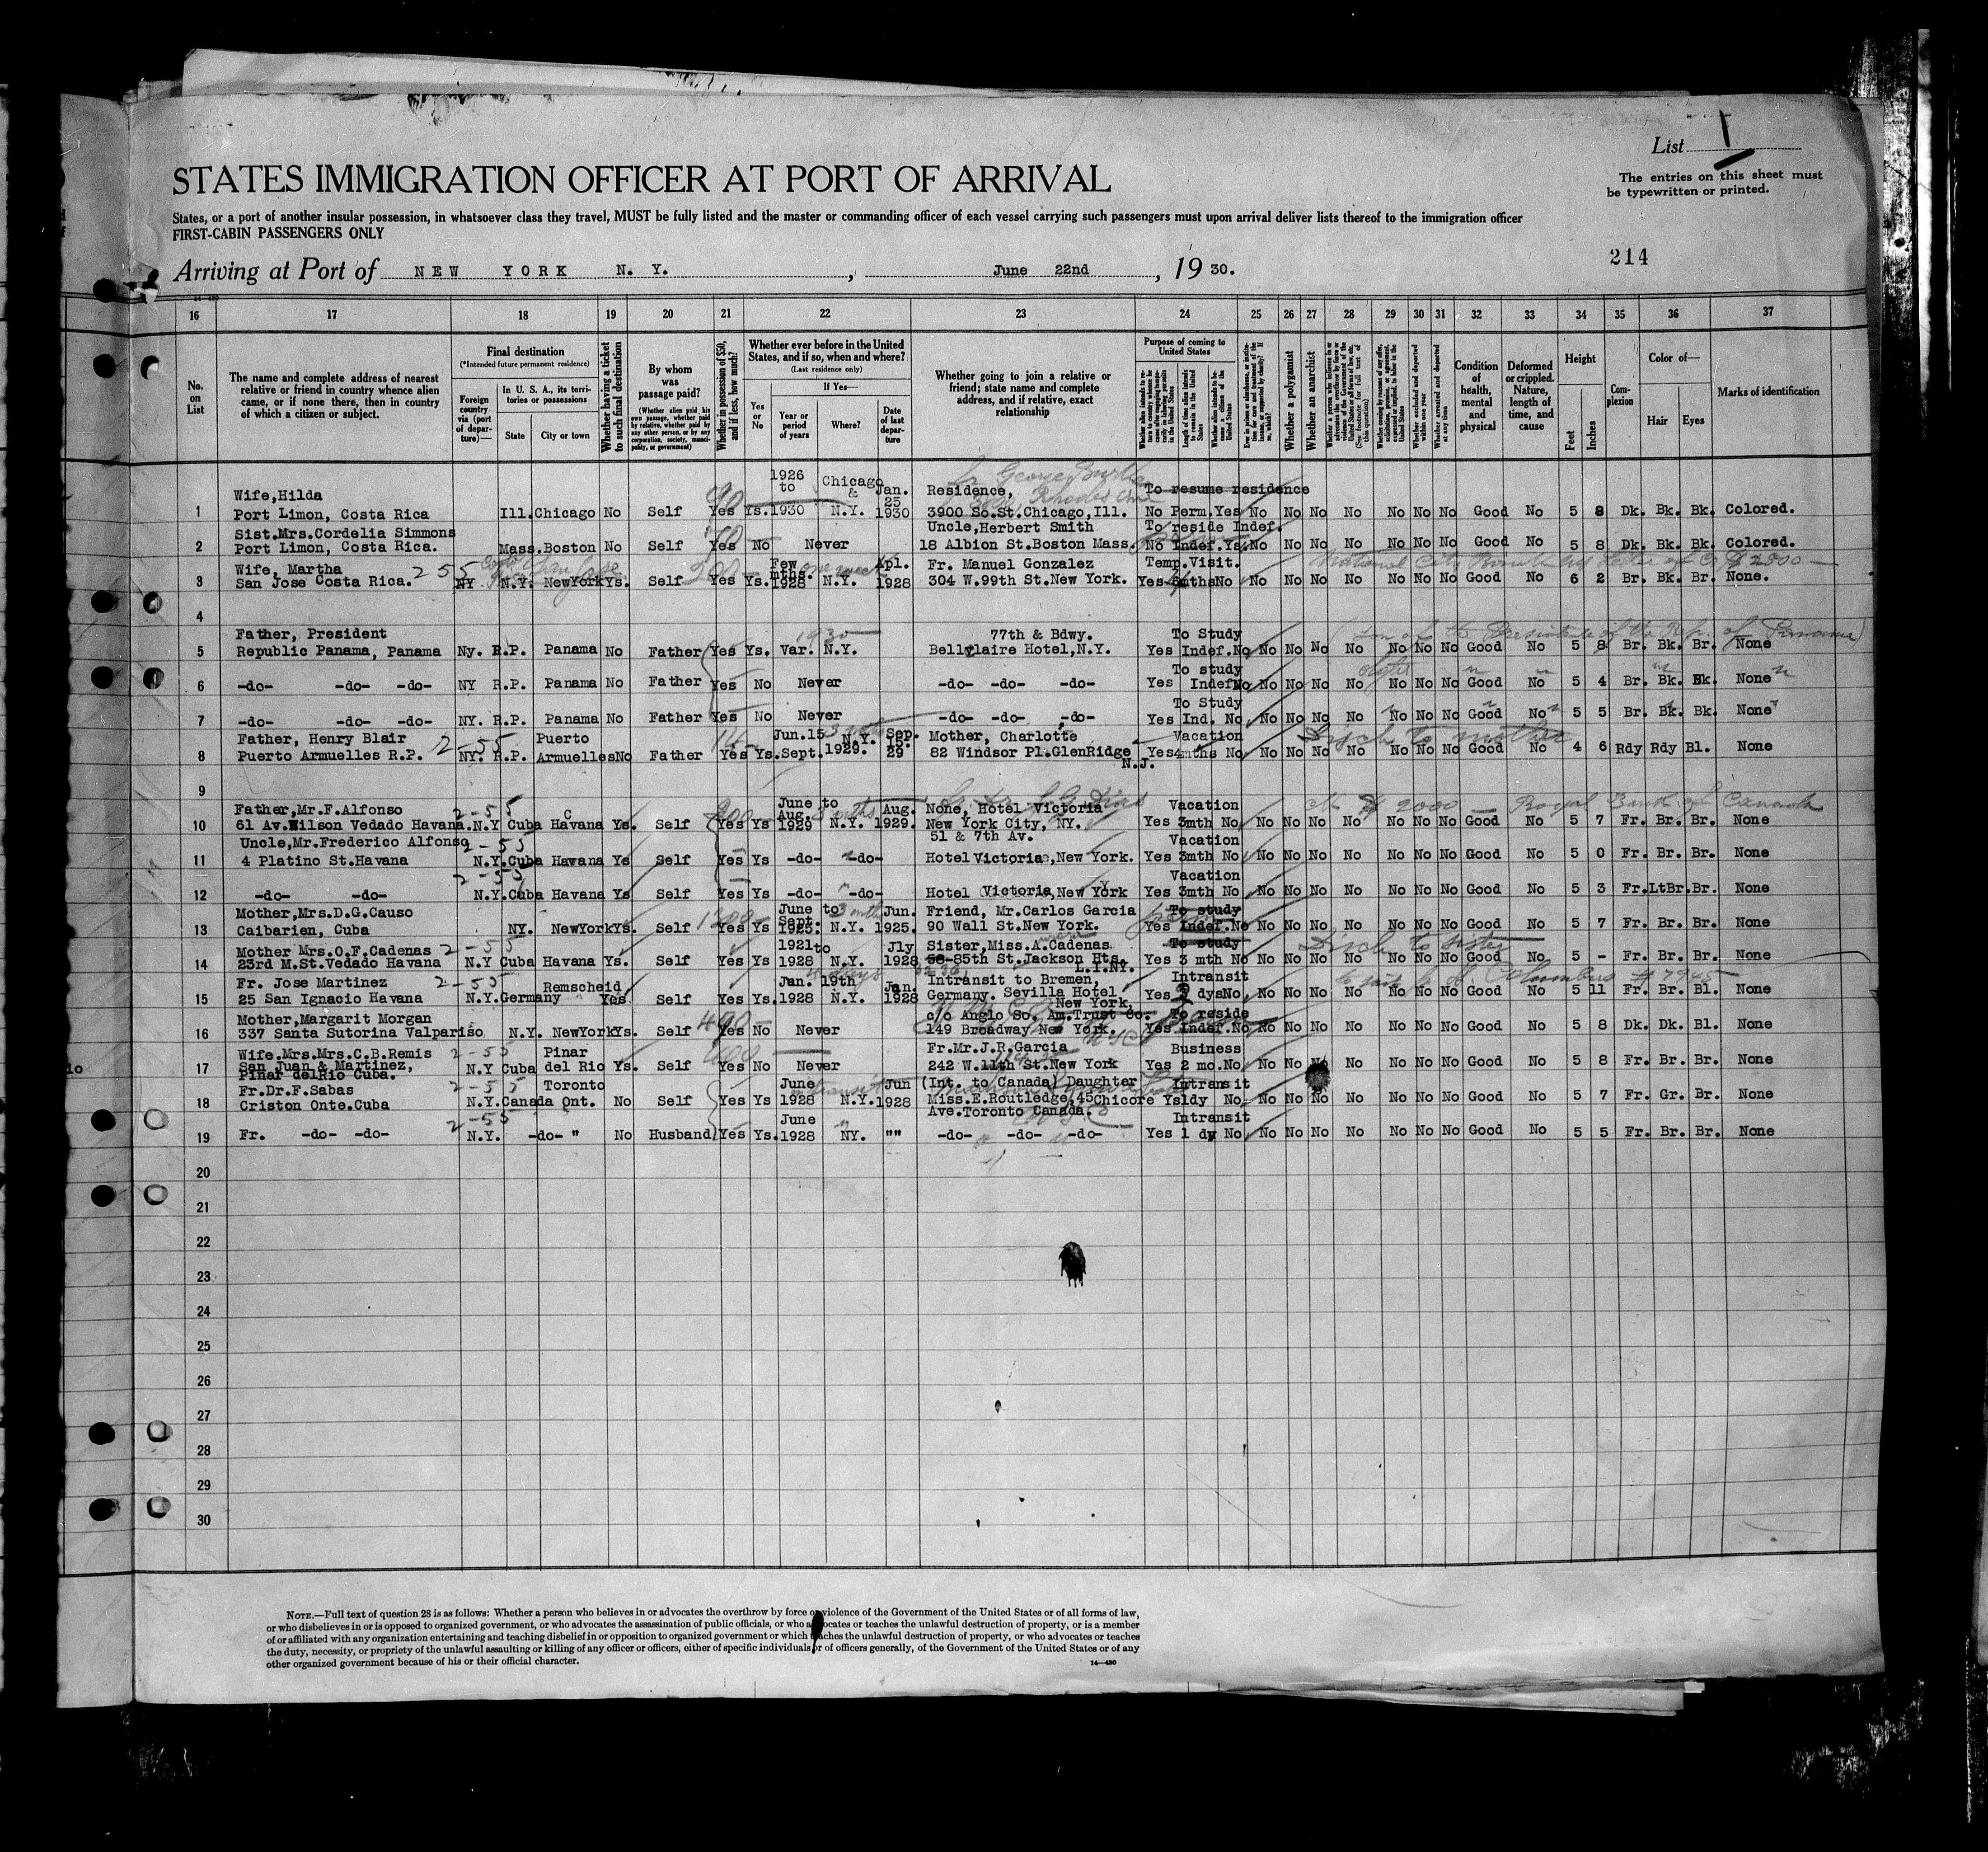 List 1
The entries on this sheet must
be typewritten or printed.
STATES IMMIGRATION OFFICER AT PORT OF ARRIVAL
States, or a port of another insular possession, in whatsoever class they travel, MUST be fully listed and the master or commanding officer of each vessel carrying such passengers must upon arrival deliver lists thereof to the immigration officer
FIRST-CABIN PASSENGERS ONLY
214
Arriving at Port of NEW YORK N. Y. , June 22nd , 19 30.
16 17 18 19 20 21 22 23 24 25 26 27 28 29 30 31 32 33 34 35 36 37
No. on List
The name and complete address of nearest
relative or friend in country whence alien
came, or if none there, then in country
of which a citizen or subject.
Final destination
(*Intended future permanent residence)
Foreign country via (port of departure)—
In U. S. A., its territories or possessions
State City or town
Whether having a ticket to such final destination
By whom was passage paid?
(Whether alien paid his own passage, whether paid by relative, whether paid by any other person, or by any corporation, society, municipality, or government)
Whether in possession of $50, and if less, how much?
Whether ever before in the United States, and if so, when and where?
(Last residence only)
Yes or No
If Yes—
Year or period of years
Where?
Date of last departure
Whether going to join a relative or
friend; state name and complete
address, and if relative, exact
relationship
Purpose of coming to United States
Whether a polygamist
Whether an anarchist
Condition of health, mental and physical
Deformed or crippled. Nature, length of time, and cause
Height
Feet Inches
Complexion
Color of—
Hair Eyes
Marks of identification
Wife,Hilda 1926 to Chicago & Jan. 25 Residence, To resume residence
1 Port Limon, Costa Rica Ill. Chicago No Self Yes Ys. 1930 N.Y. 1930 3900 So.St.Chicago,Ill. No Perm. Yes No No No No No No No Good No 5 8 Dk. Bk. Bk. Colored.
Sist.Mrs.Cordelia Simmons Uncle,Herbert Smith To reside Indef.
2 Port Limon, Costa Rica. Mass. Boston No Self Yes No Never 18 Albion St.Boston Mass. No Indef. Ys. No No No No No No No Good No 5 8 Dk. Bk. Bk. Colored.
Wife, Martha 255 Few mths. one week Apl. Fr. Manuel Gonzalez Temp.Visit. National City Bank $2500
3 San Jose Costa Rica. NY N.Y. NewYork Ys. Self Yes Ys. 1928 N.Y. 1928 304 W.99th St.New York. Yes 6mths No No No No No No No No Good No 6 2 Br. Bk. Br. None.
4
Father, President 1930 77th & Bdwy. To Study (son of the Presidente of the Rep. of Panama)
5 Republic Panama, Panama Ny. R.P. Panama No Father Yes Ys. Var. N.Y. Bellclaire Hotel,N.Y. Yes Indef. No No No No No No No No Good No 5 8 Br. Bk. Br. None
To study
6 -do- -do- -do- NY R.P. Panama No Father Yes No Never -do- -do- -do- Yes Indef No No No No No No No No Good No 5 4 Br. Bk. Bk. None
To Study
7 -do- -do- -do- NY. R.P. Panama No Father Yes No Never -do- -do- -do- Yes Ind. No No No No No No No No Good No 5 5 Br. Bk. Bk. None
Father, Henry Blair 2-55 Puerto Jun.15 N.Y. Sep. 15. Mother, Charlotte Vacation Disch to mother
8 Puerto Armuelles R.P. NY. R.P. Armuelles No Father Yes Ys. Sept. 1929. 29 82 Windsor Pl.GlenRidge N.J. Yes 4mths No No No No No No No No Good No 4 6 Rdy Rdy Bl. None
9
Father,Mr.F.Alfonso 2-55 June to Aug. None, Hotel Victoria Vacation $2000 — Royal Bank of Canada
10 61 Av.Wilson Vedado Havana. N.Y Cuba Havana Ys. Self Yes Ys Aug. 1929 N.Y. 1929. New York City, NY. Yes 3mth No No No No No No No No Good No 5 7 Fr. Br. Br. None
Uncle,Mr.Frederico Alfonso 2-55 51 & 7th Av. Vacation
11 4 Platino St.Havana N.Y. Cuba Havana Ys Self Yes Ys -do- -do- Hotel Victoria, New York. Yes 3mth No No No No No No No No Good No 5 0 Fr. Br. Br. None
2-55 Vacation
12 -do- -do- N.Y. Cuba Havana Ys Self Yes Ys -do- -do- Hotel Victoria, New York Yes 3mth No No No No No No No No Good No 5 3 Fr. LtBr. Br. None
Mother,Mrs.D.G.Causo June to 3 mths Jun. Friend, Mr.Carlos Garcia To study
13 Caibarien, Cuba NY. NewYork Ys. Self Yes Ys Sept. 1925. N.Y. 1925. 90 Wall St.New York. Yes Indef. No No No No No No No No Good No 5 7 Fr. Br. Br. None
Mother Mrs.O.F.Cadenas 2-55 1921 to Jly Sister,Miss.A.Cadenas. To study Disch to sister
14 23rd M.St.Vedado Havana N.Y Cuba Havana Ys. Self Yes Ys 1928 N.Y. 1928 58-85th St.Jackson Hts. L.I.NY. Yes 3 mth No No No No No No No No Good No 5 - Fr. Br. Br. None
Fr. Jose Martinez 2-55 Remscheid Jan. 19th Jan. Intransit to Bremen, Intransit Columbus #7945
15 25 San Ignacio Havana N.Y. Germany Yes Self Yes Ys. 1928 N.Y. 1928 Germany. Sevilla Hotel New York, Yes 2 dys No No No No No No No No Good No 5 11 Fr. Br. Bl. None
Mother,Margarit Morgan 400- c/o Anglo So. Am.Trust Co. To reside
16 337 Santa Sutorina Valpariso N.Y. NewYork Ys. Self Yes No Never 149 Broadway New York. Yes Indef. No No No No No No No No Good No 5 8 Dk. Dk. Bl. None
Wife.Mrs.Mrs.C.B.Remis 2-55 Pinar Fr.Mr.J.R.Garcia Business
17 San Juan & Martinez, N.Y Cuba del Rio Ys. Self Yes No Never 242 W.11th St.New York Yes 2 mo. No No No No No No No No Good No 5 8 Fr. Br. Br. None
Pinar delRio Cuba.
Fr.Dr.F.Sabas 2-55 Toronto June Jun (Int. to Canada) Daughter Intransit
18 Criston Onte.Cuba N.Y. Canada Ont. No Self Yes Ys 1928 N.Y. 1928 Miss.E.Routledge,45 Chicore Ys 1dy No No No No No No No No Good No 5 7 Fr. Gr. Br. None
2-55 June Ave.Toronto Canada. Intransit
19 Fr. -do- -do- N.Y. -do- " No Husband Yes Ys. 1928 NY. "" -do- -do- -do- Yes 1 dy No No No No No No No No Good No 5 5 Fr. Br. Br. None
20
21
22
23
24
25
26
27
28
29
30
NOTE.—Full text of question 28 is as follows: Whether a person who believes in or advocates the overthrow by force or violence of the Government of the United States or of all forms of law,
or who disbelieves in or is opposed to organized government, or who advocates the assassination of public officials, or who advocates or teaches the unlawful destruction of property, or is a member
of or affiliated with any organization entertaining and teaching disbelief in or opposition to organized government or which teaches the unlawful destruction of property, or who advocates or teaches
the duty, necessity, or propriety of the unlawful assaulting or killing of any officer or officers, either of specific individuals or of officers generally, of the Government of the United States or of any
other organized government because of his or their official character.
14—430